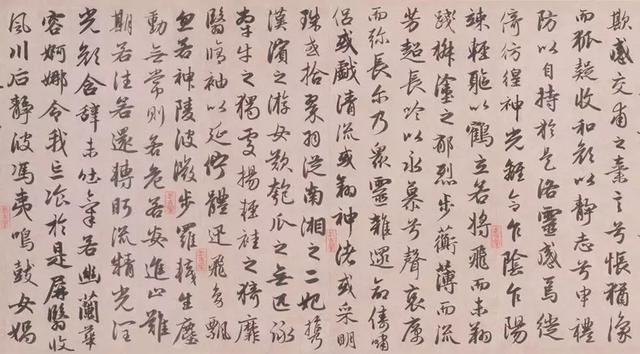 欺感交甫之棄言兮悵猶豫
而狐疑收和顏以靜志兮申禮
防以自持於是洛靈感焉徙
倚彷徨神光離合乍陰乍陽
竦輕軀以鶴立若將飛而未翔
踐椒塗之郁烈步蘅薄而流
芳超長吟以永慕兮聲哀厲
而彌長爾乃眾靈雜遝命儔嘯
侶或戲清流或翔神渚或采明
珠或拾翠羽從南湘之二妃攜
漢濱之游女歎匏瓜之無匹詠
牽牛之獨處揚輕袿之猗靡
翳脩袖以延佇體迅飛鳧飄
忽若神陵波微步羅襪生塵
動無常則若危若安進止難
期若往若還轉眄流精光潤
玉顏含辭未吐氣若幽蘭華
容婀娜令我忘飡於是屏翳收
風川后靜波馮夷鳴鼓女媧